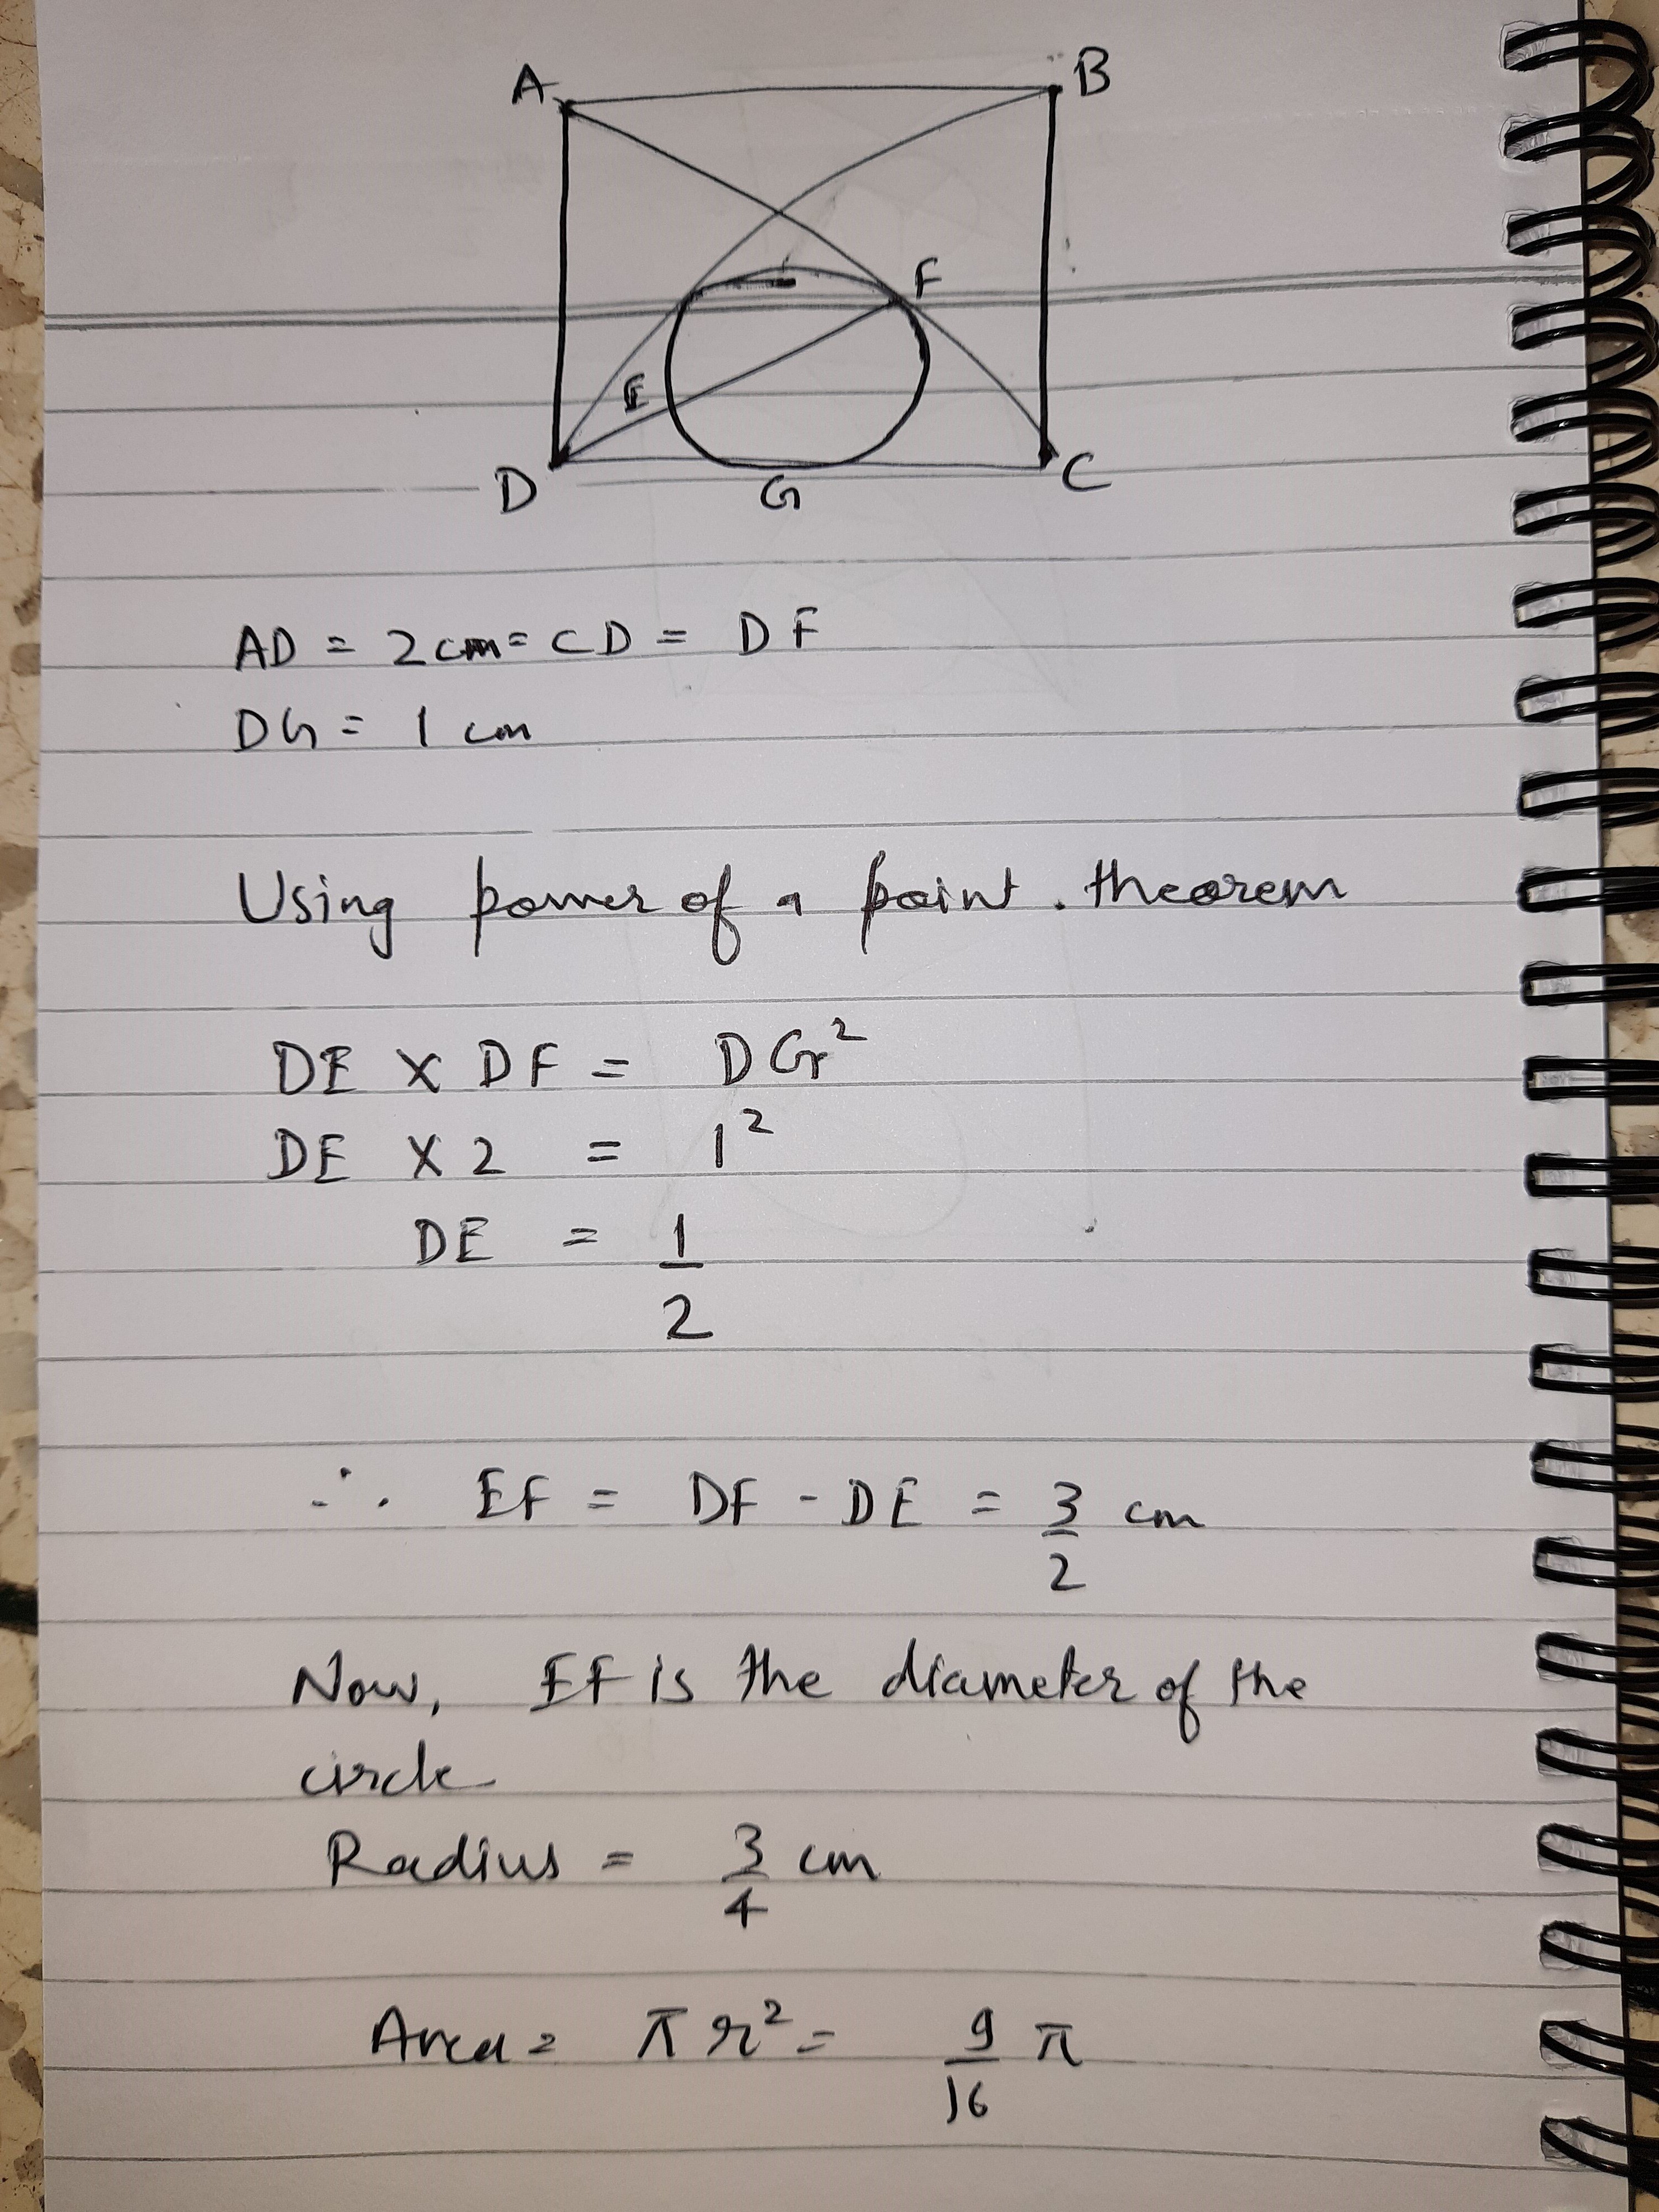 A B
F
E
D G C
AD = 2cm = CD = DF
DG = 1 cm
Using power of a point . theorem
DE X DF = DG²
DE X 2 = 1²
DE = 1/2
∴ EF = DF - DE = 3/2 cm
Now, EF is the diameter of the
circle
Radius = 3/4 cm
Area = πr² = 9/16 π